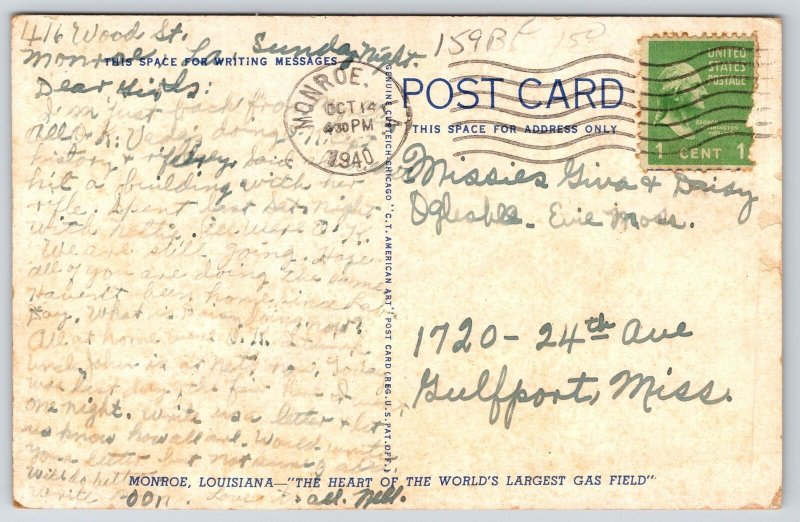 416 Wood St.
Monroe, La. Sunday Night.
THIS SPACE FOR WRITING MESSAGES
Dear Girls:
I'm just back from
all O.K.
history + Said
hit a building with her
rifle. Spent last Sat. night
with Nettie. All were O.K.
We are still going. Hope
all of you are doing the same
Haven't been home since Labor
Day. What is Daisy doing now?
All at home were O.K.
Uncle John is at now. Today
was last day of the fair here. I
one night. Write us a letter + let
us know how all are. Would write
you a letter but
Will do better
Write soon. Love to all. Nell.
MONROE, LA
OCT 14
4:30 PM
1940
159B 150
POST CARD
THIS SPACE FOR ADDRESS ONLY
UNITED
STATES
POSTAGE
GEORGE
WASHINGTON
1 CENT 1
Misses Giva + Daisy
Oglesbee - Evie Moss.
1720 - 24th Ave
Gulfport, Miss.
GENUINE CURTEICH-CHICAGO "C.T. AMERICAN ART" POST CARD (REG. U.S. PAT. OFF.)
MONROE, LOUISIANA—"THE HEART OF THE WORLD'S LARGEST GAS FIELD"